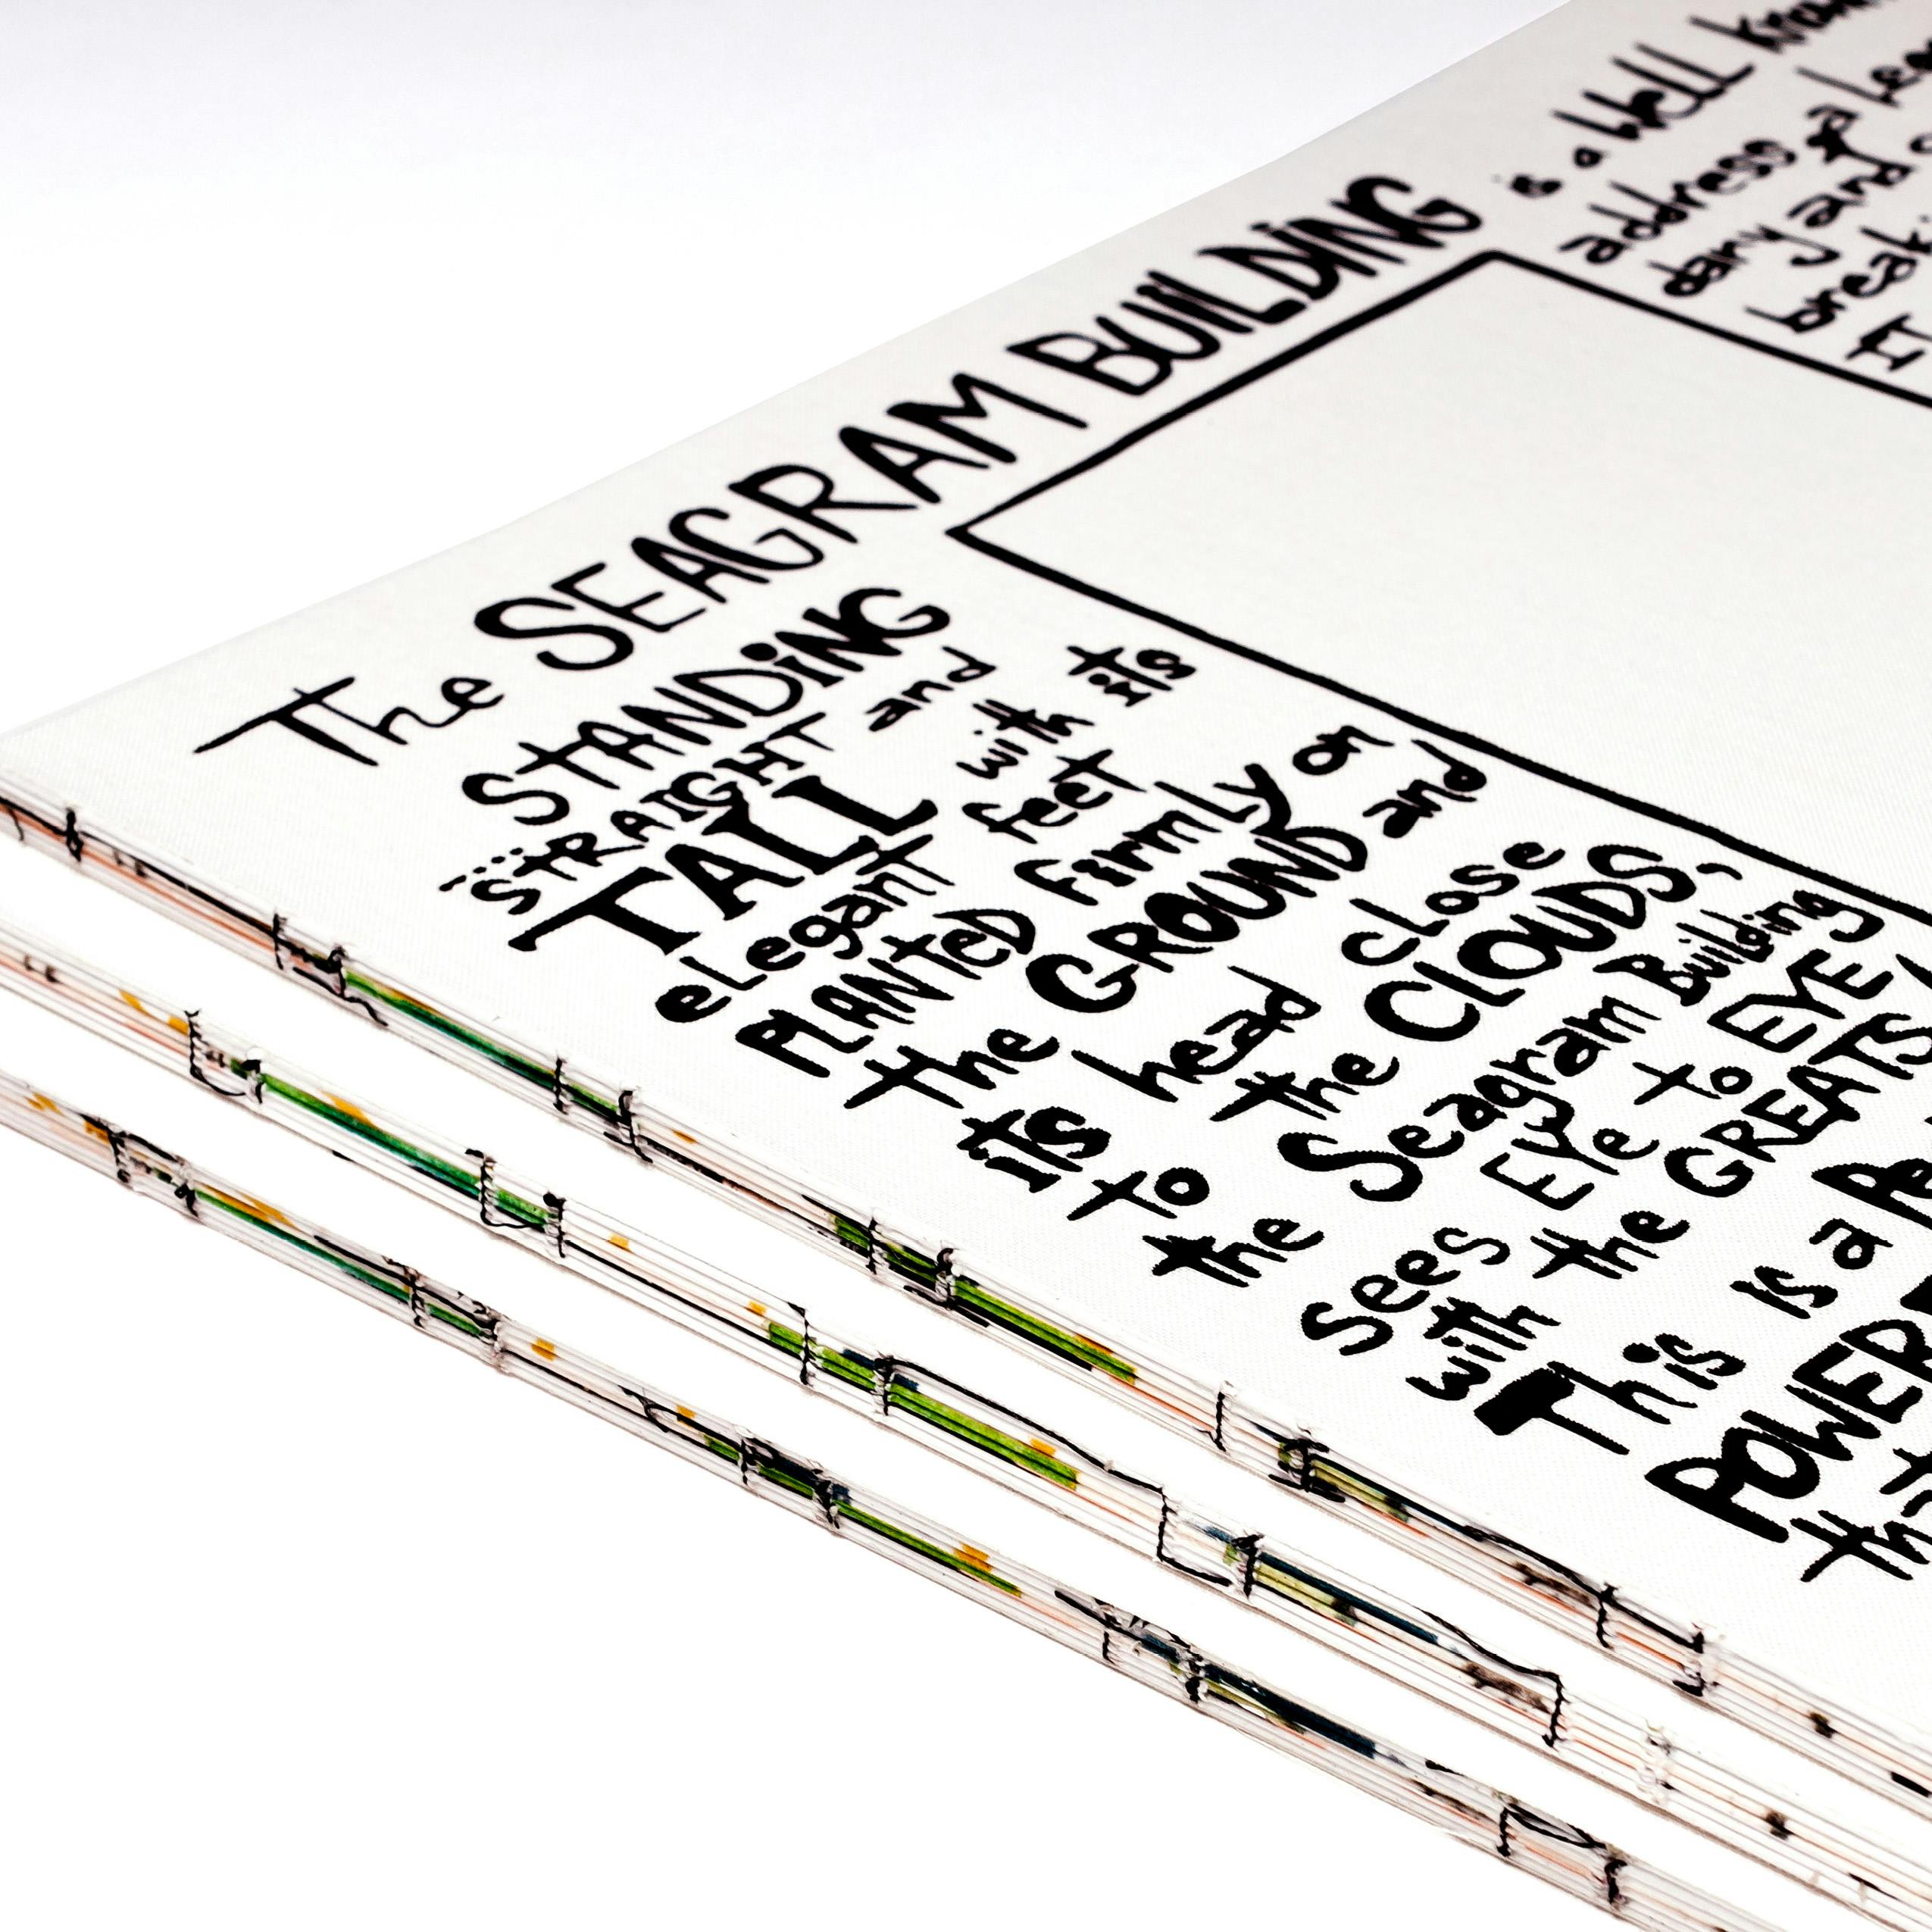 The SEAGRAM BUILDING
is a Well
address
dary and
IT
STANDING
...STRAIGHT and
TALL with its
elegant feet
PLANTED Firmly on
the GROUND and
its head close
to the CLOUDS,
the Seagram Building
sees Eye to EYE
with the GREATS
This is a
POWER